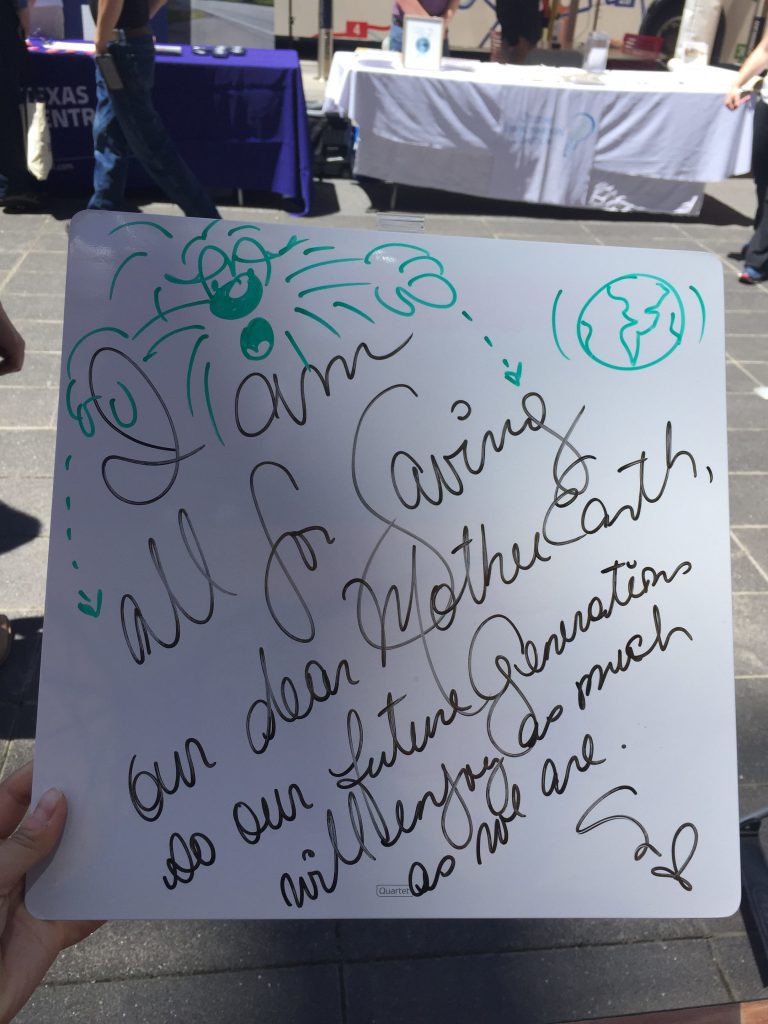 TEXAS
CENTR
I am
all for Saving
our dear Mother Earth,
so our future Generations
will enjoy as much
as we are.
Quartet